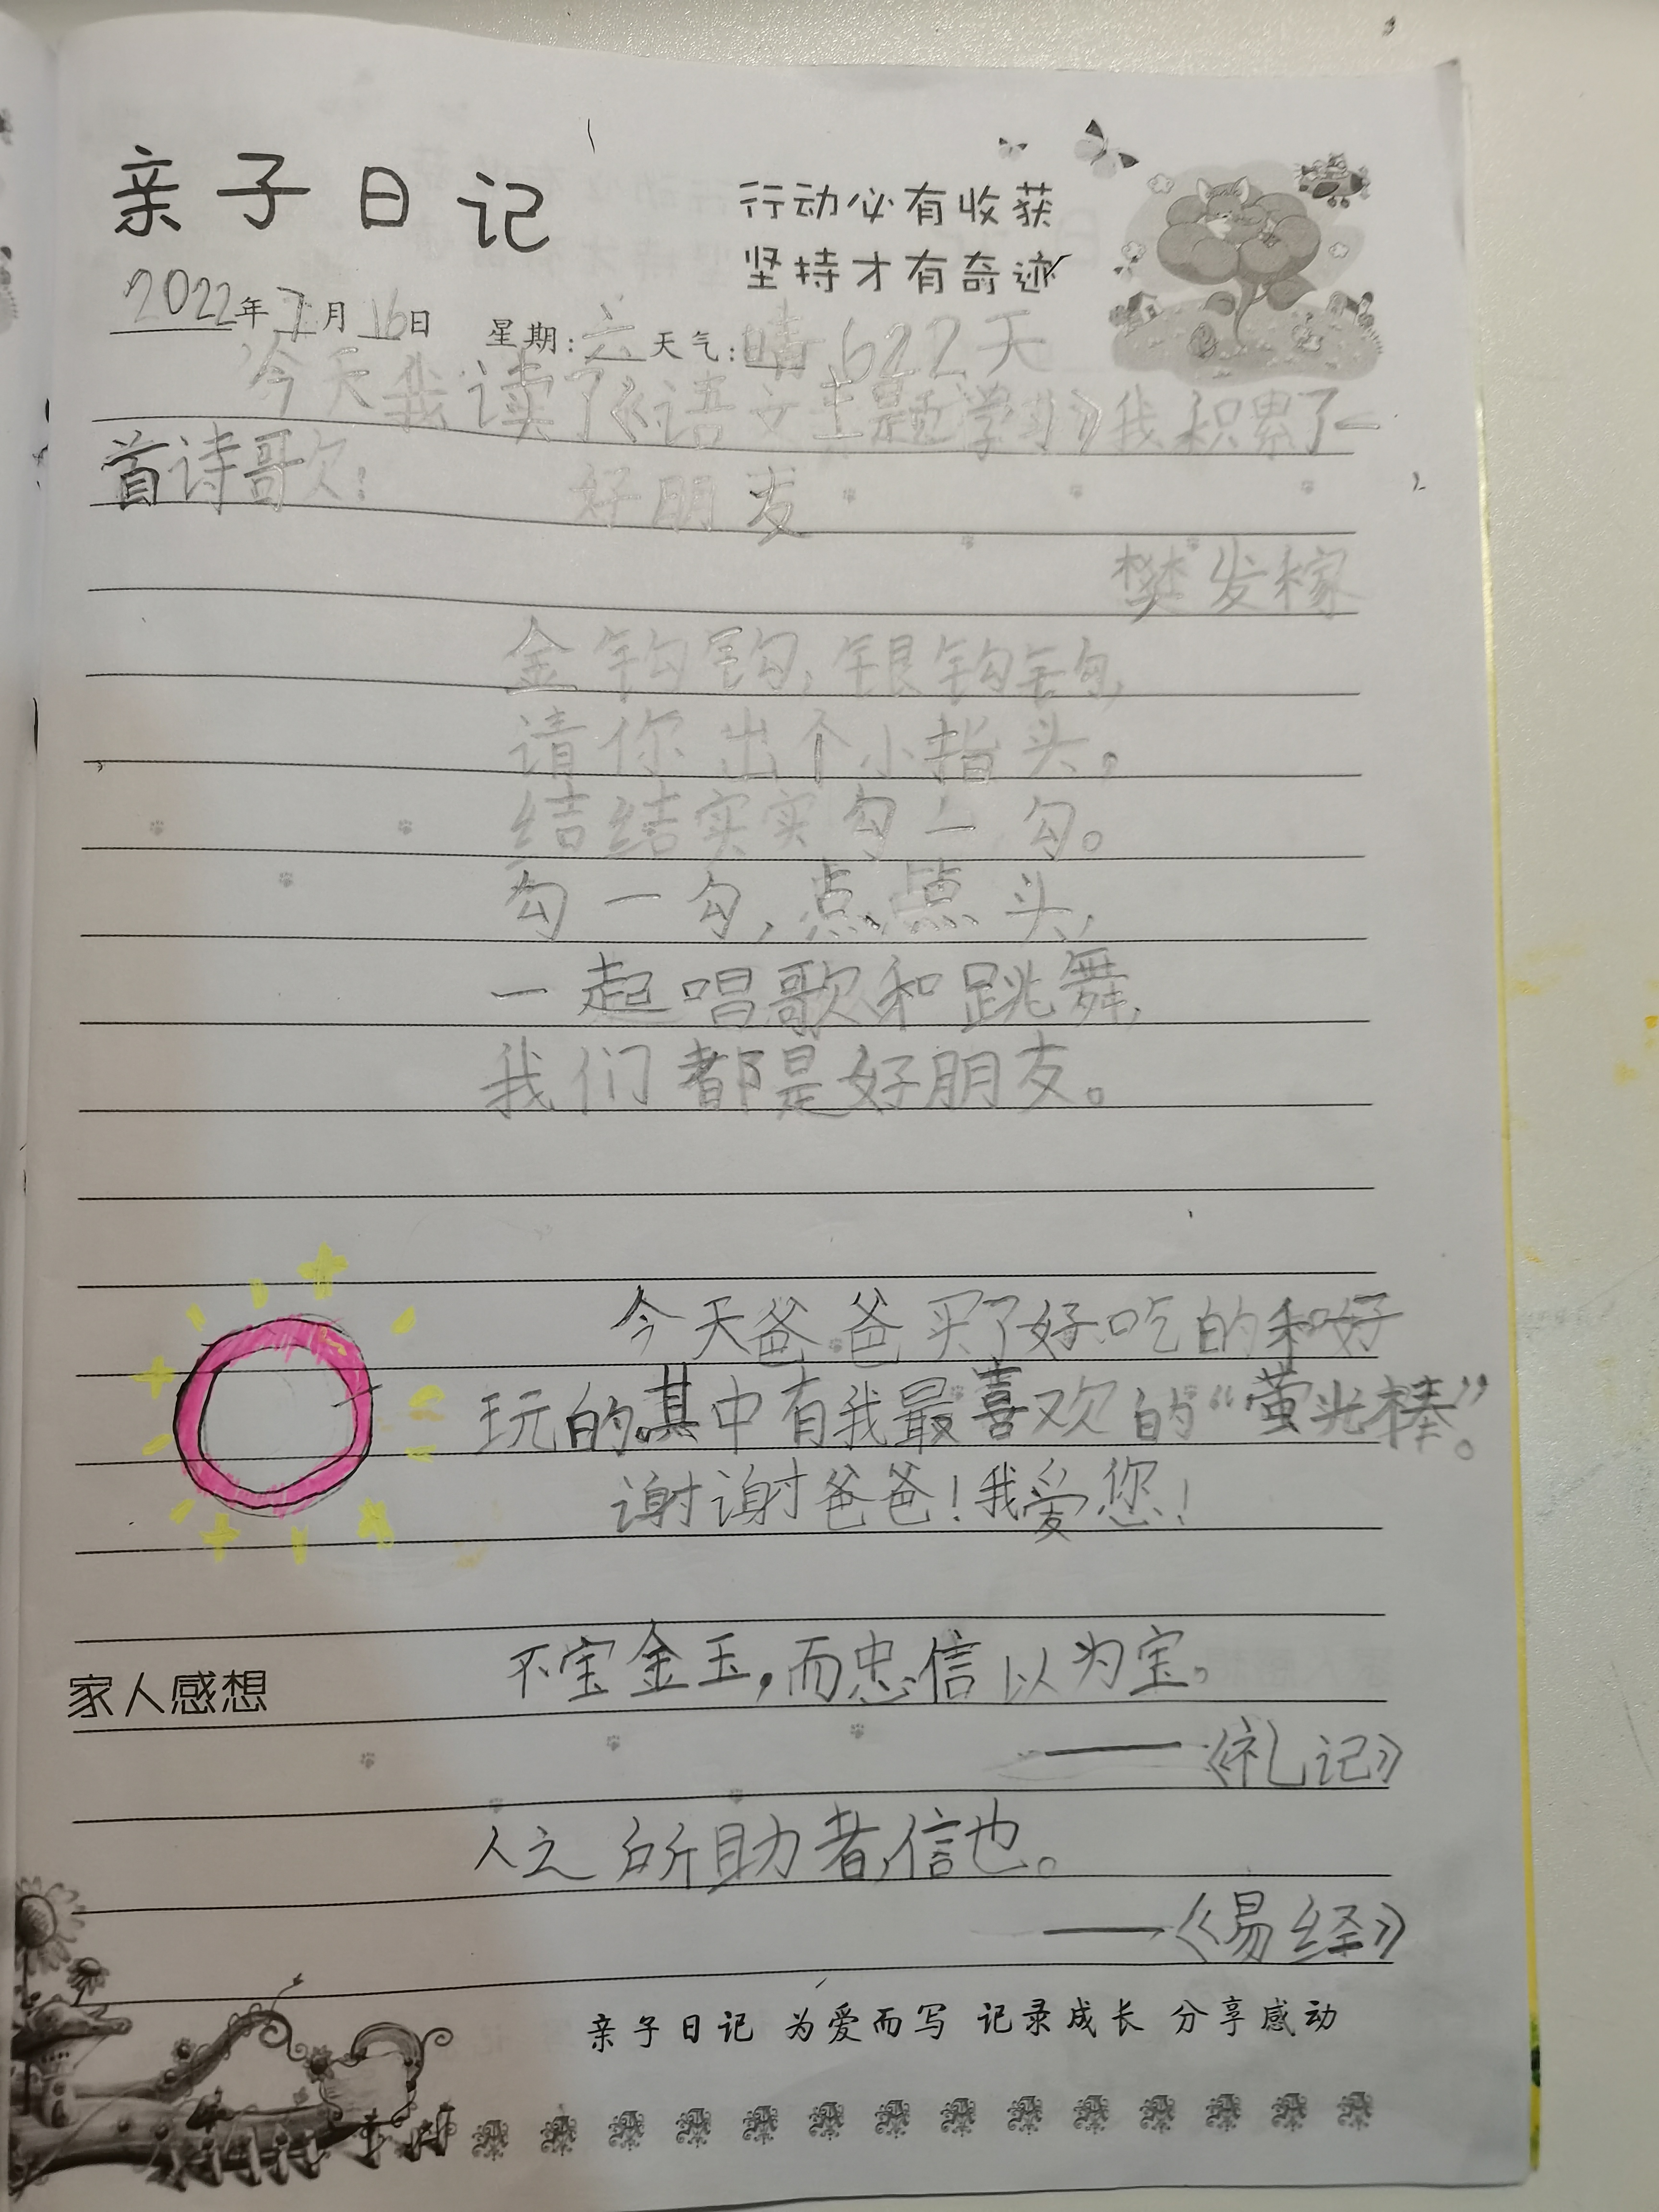 亲子日记
行动必有收获
坚持才有奇迹
2022年7月16日 星期:六 天气:晴 622天
今天我读了《语文主题学习》我积累了一
首诗歌:
好朋友
樊发稼
金钩钩,银钩钩,
请你出个小指头,
结结实实勾一勾。
勾一勾,点点头,
一起唱歌和跳舞,
我们都是好朋友。
今天爸爸买了好吃的和好
玩的,其中有我最喜欢的“萤光棒”。
谢谢爸爸!我爱您!
家人感想
不宝金玉,而忠信以为宝。
——《礼记》
人之所助者,信也。
——《易经》
亲子日记 为爱而写 记录成长 分享感动